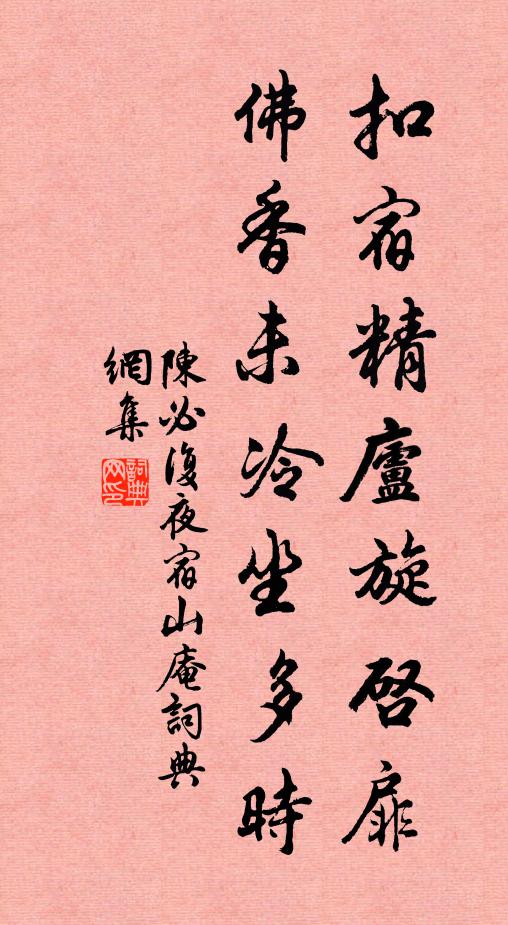 扣宿精廬旋啓扉
佛香未冷坐多時
陳必復夜宿山庵詞典
網集
詞典网印